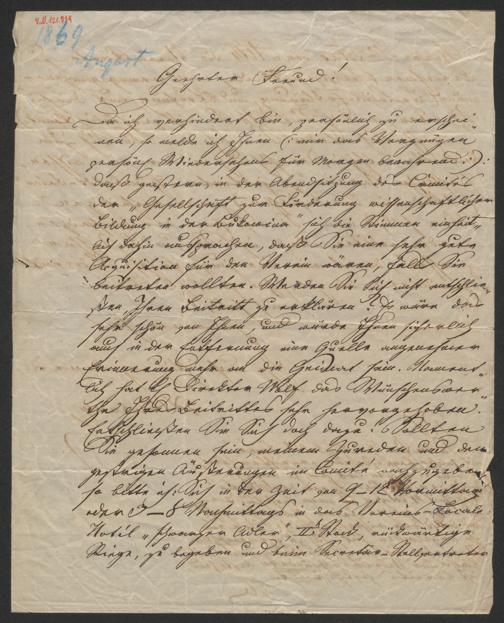 1869
August
Geehrter Freund!
Da ich verhindert bin, persönlich zu erschei-
nen, so melde ich Ihnen (: mir das Vergnügen
persönl. Wiedersehens für Morgen :)
daß gestern, in der Abendsitzung des Comités
der „Gesellschaft zur Förderung wissenschaftlicher
Bildung in der Bukowina" sich die Stimmen einheit-
lich dahin aussprachen, daß Sie eine sehr gute
Acquisition für den Verein wären, falls Sie
beitreten wollten. Werden Sie sich nicht entschlie-
ßen, Ihren Beitritt zu erklären? Es wäre das
sehr schön von Ihnen und würde Ihnen sicherlich
auch in der Entfernung eine Quelle angenehmer
Erinnerung mehr an die Heimat sein. Nament-
lich hat Direktor Wolf das Wünschenswer-
the Ihres Beitrittes sehr hervorgehoben.
Entschließen Sie Sich doch dazu! Sollten
Sie gesonnen sein, meinem Zureden und den
gestrigen Äußerungen im Comité nachzugeben
so bitte ich Sich in der Zeit von 9–12 Vormittags
oder 3–8 Nachmittags in das Vereins-Locale
Hotel „schwarzer Adler", II. Stock, rückwärtige
Stiege, zu begeben und beim Secretär-Stellvertreter